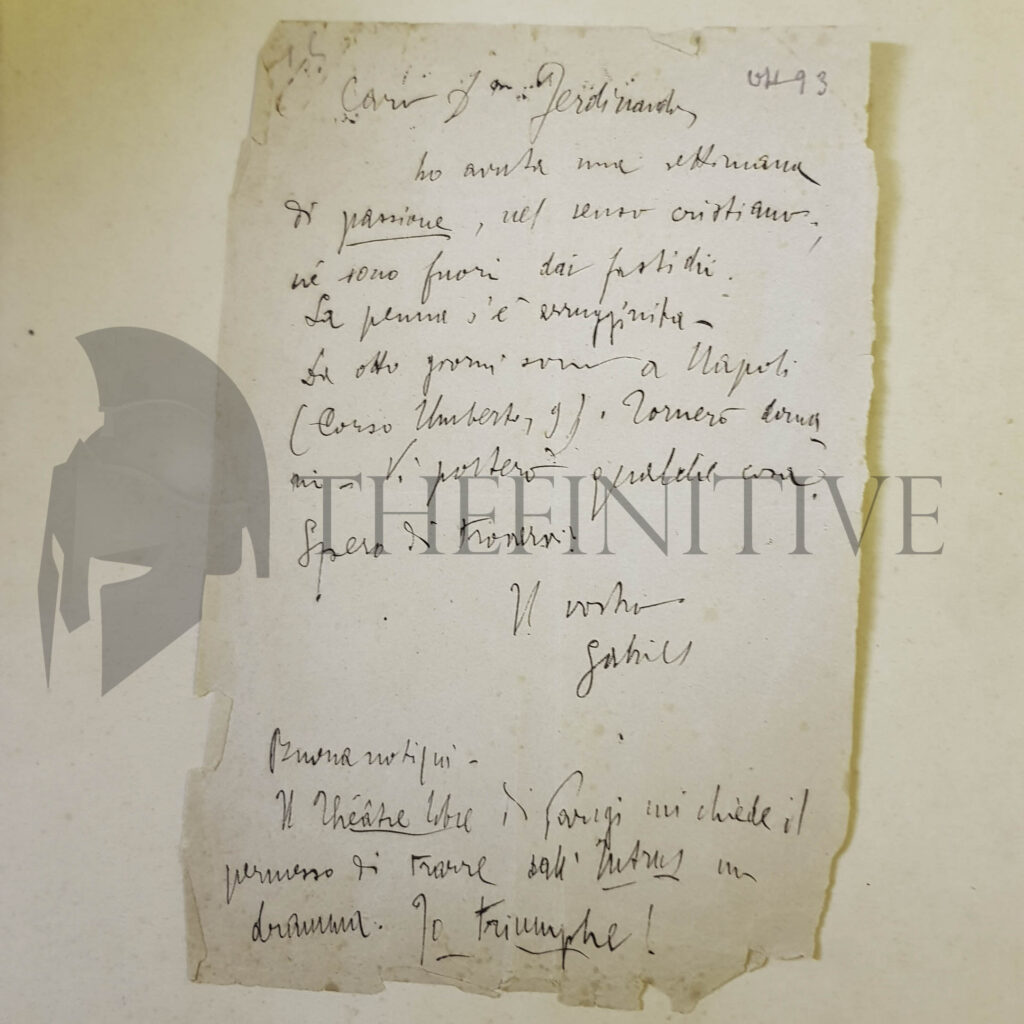 Caro Don Ferdinando,
ho avuta una settimana
di passione, nel senso cristiano;
nè sono fuori dai fastidii.
La penna s'è arrugginita -
Da otto giorni sono a Napoli
(Corso Umberto, 9). Tornerò doma
ni - Vi porterò qualche cosa.
Spero di trovarvi!
THEFINITIVE
Il vostro
Gabriel
Buona notizia -
Il Théâtre libre di Parigi mi chiede il
permesso di trarre dall' Intrus un
dramma. Io triumphe!